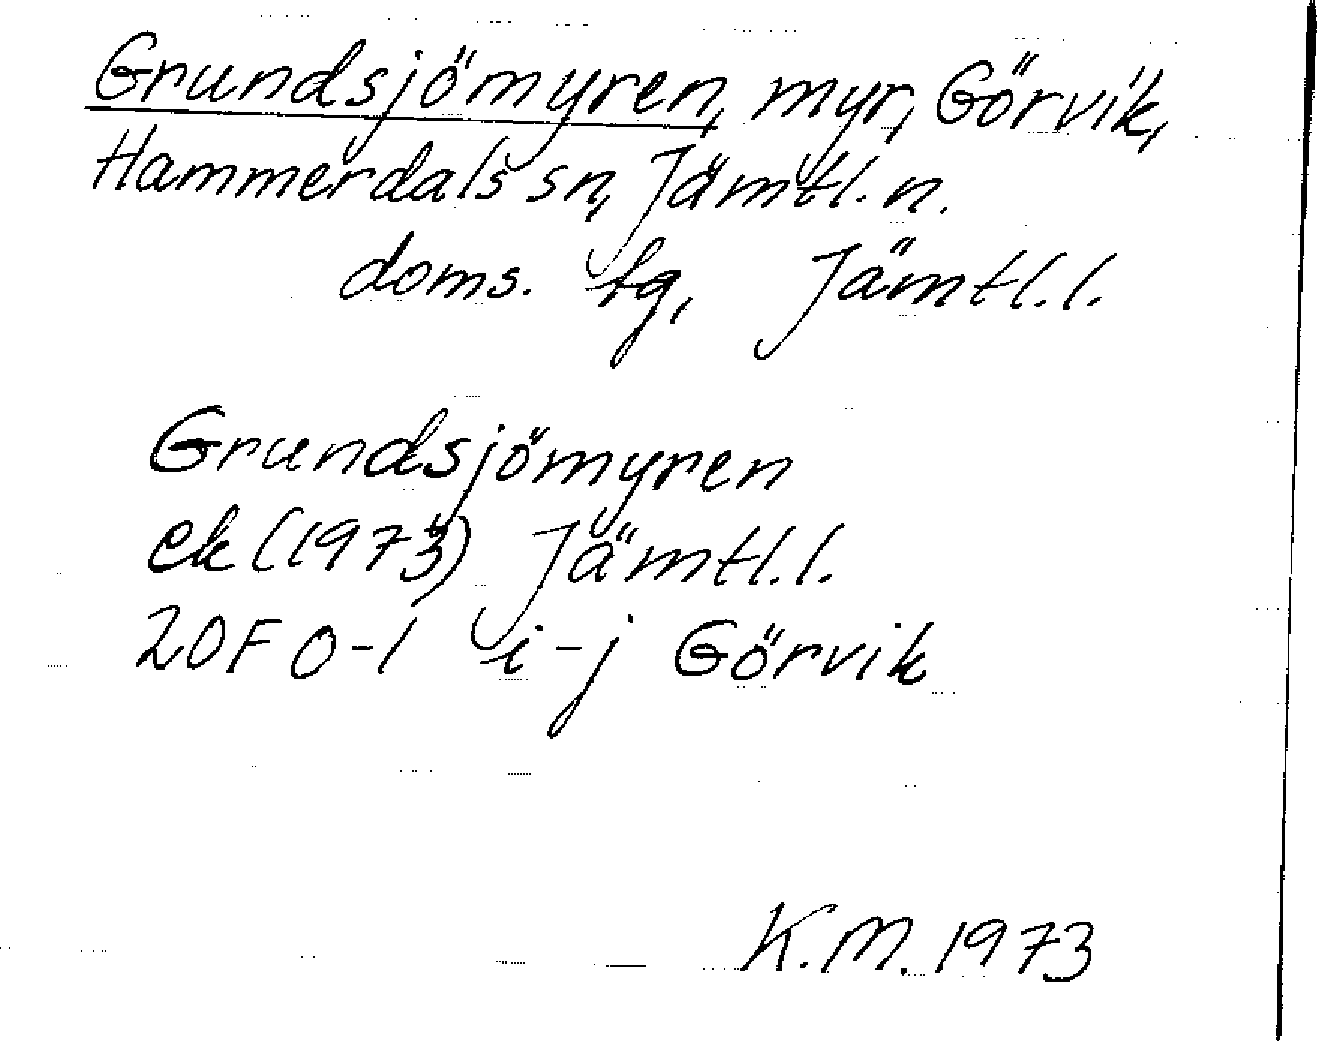 Grundsjömyren, myr, Görvik,
Hammerdals sn, Jämtl. n.
doms. tg, Jämtl. l.
Grundsjömyren
ek (1973) Jämtl. l.
20F 0-1 i-j Görvik
K.M. 1973